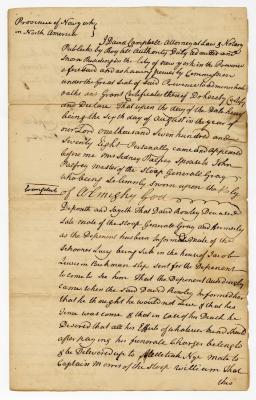 Province of New york
in North America
I David Campbell Attorney at Law & Notary
Publick by Royal Authority Duly admitted and
Sworn Residing in the City of New york in the Province
aforesaid and
under the Great Seal of said Province to administer
oaths and Grant Certificates thereof Do hereby Certify
and Declare That upon the day of the Date hereof
being the Seventh day of August in the year of
our Lord one thousand Seven hundred and
Seventy Eight Personally came and appeared
before me Mrs Sidney Palfrey Spouse to John
Palfrey master of the Sloop General Gray
who being Solemnly Sworn upon the Holy
Evangelists
of Almighty God
Deposeth and Sayeth That David Rowley Deceased
Late mate of the Sloop General Gray and formerly
as the Deponent has been Informed mate of the
Schooner Lucy being Sick in the house of Jacob
Lewis in Buckman slip sent for the Deponent
to come to see him That the Deponent accordingly
came when the said David Rowley Informed her
that he thought he would not Live & that his
time was come & that in Case of his Death he
Desired that all his Effects of whatever kind Should
after paying his funeral Charges belong to
& be Delivered up to Nye mate to
Captain Morris of the Sloop William That
this